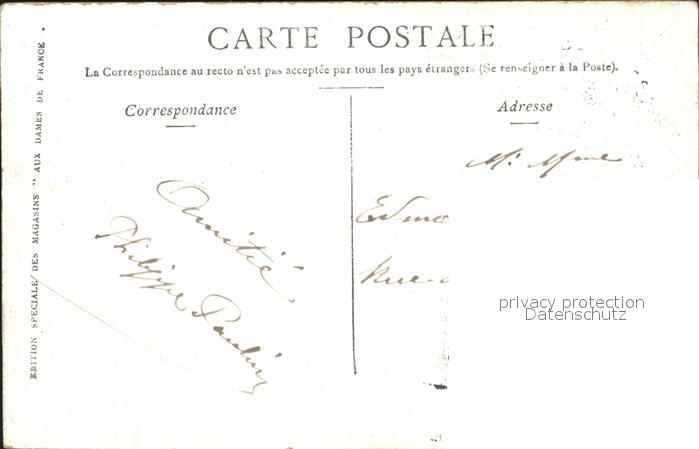 CARTE POSTALE
La Correspondance au recto n'est pas acceptée par tous les pays étrangers (Se renseigner à la Poste).
Correspondance
Adresse
EDITION SPECIALE DES MAGASINS " AUX DAMES DE FRANCE "
Amitié
Philippe
Mr Mme
Rue
privacy protection
Datenschutz